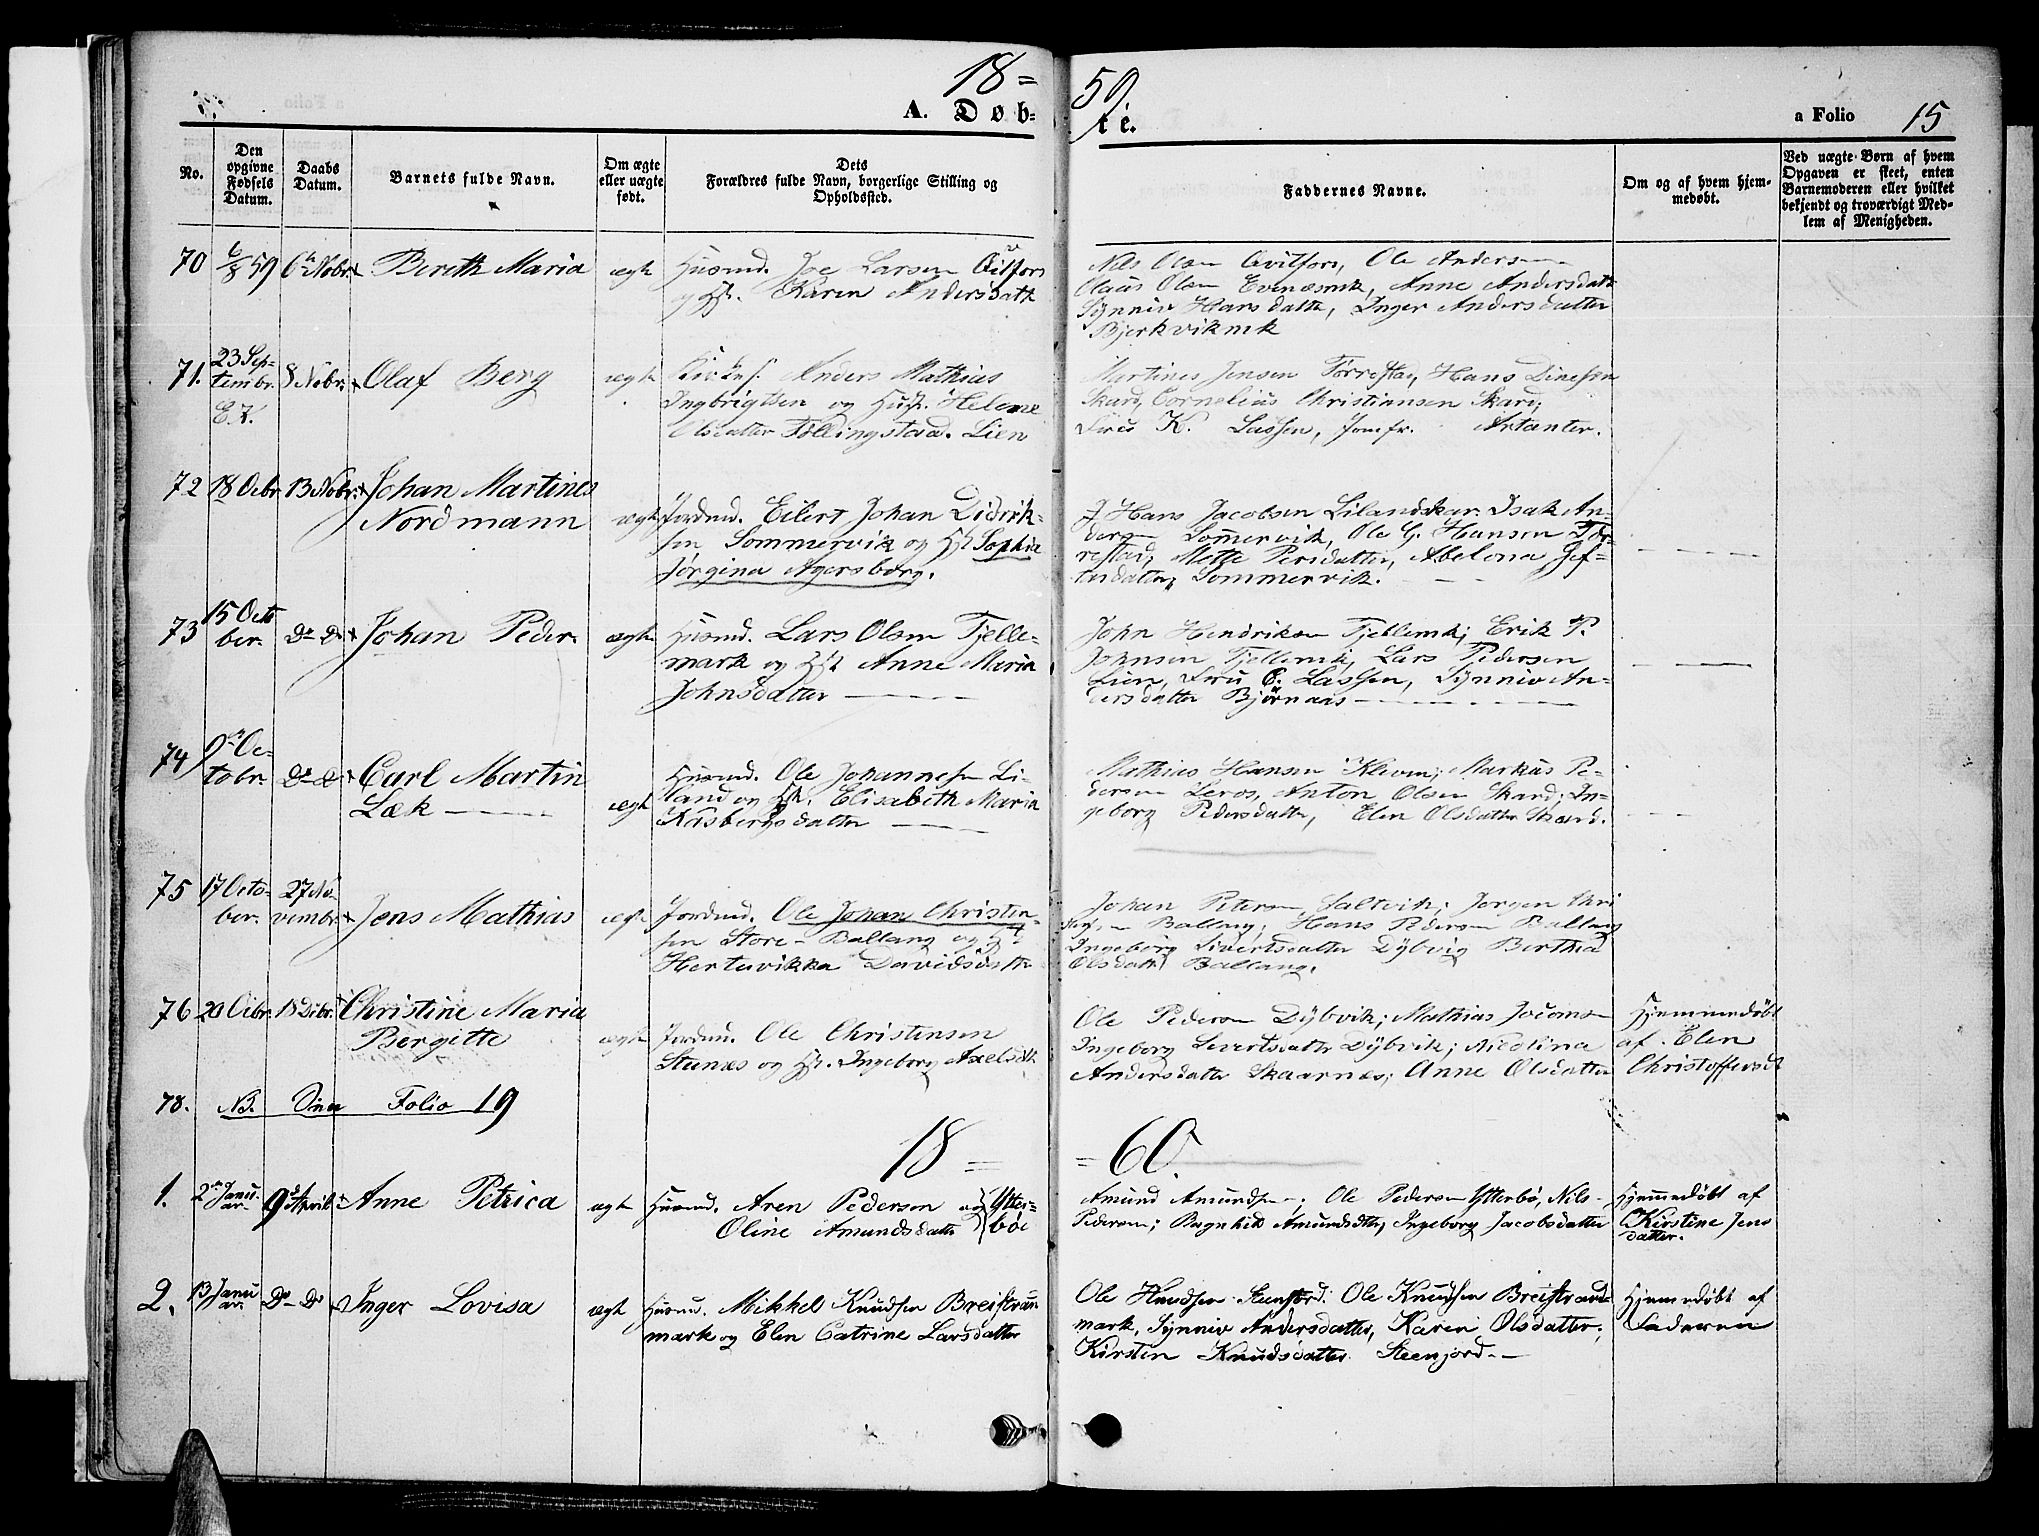 18=
59.
A. Døb-
te.
a Folio
15
No.
Den
opgivne
Fødsels
Datum.
Daabs
Datum.
Barnets fulde Navn.
Om ægte
eller uægte
født.
Dets
Forældres fulde Navn, borgerlige Stilling og
Opholdssted.
Faddernes Navne.
Om og af hvem hjem-
medøbt.
Ved uægte Børn af hvem
Opgaven er skeet, enten
Barnemoderen eller hvilket
bekjendt og troværdigt Med-
lem af Menigheden.
70 6/8 59 6te Nobr. Berith Maria ægte Husmd. Joe Larsen Qvitfors
og Hst. Karen Andersdatt
Nils Olsen Qvitfors, Ole Andersen
Olaus Olsen Evenesmk, Anne Andersdatt
Synniv Hansdatter, Inger Andersdatter
Bjerkvikmk
71. 23 Sep-
tembr. 8 Nobr. Olaf Berg ægte Anders Mathias
Ingbrigtsen og Hust. Helene
Olsdatter Føllingstad. Lien
Martines Jensen Tørrestad, Hans Dinesen
Skard, Cornelius Christiansen Skard;
Frus K. Lassen, Jomfr. Artanter.
72 18 Octbr 13 Nobr. Johan Martines
Nordmann ægte Jordmd. Eilert Johan Didrik-
sen Sommervik og Hst Sophia
Jørgina Agersborg.
Hans Jacobsen Lilandskar. Isak An-
dersen Sommervik, Ole G. Hansen Tør-
restad, Mette Persdatter, Abelona Jef-
tesdatter, Sommervik.
73 15 Octo
ber. Do Do Johan Peder. ægte Husmd. Lars Olsen Fjelle-
mark og Hst Anne Maria
Johnsdatter
John Hendriksen Fjellemk; Erik P.
Johnsen Fjellemk, Lars Pedersen
Lien, Frü C. Lassen, Synniv An-
dersdatter Bjørnaas
74 9de Oc-
tobr. Do Do Carl Martin
Læk ægte Husmd. Ole Johannesen Li-
land og Hst. Elisabeth Maria
Kasbergsdatter
Mathias Hansen Kleven; Markus Pe-
dersen Leros, Anton Olsen Skard; In-
geborg Pedersdatter, Elen Olsdatter Skard.
75 17 Octo-
ber. 27 No-
vembr. Jens Mathias ægte Jordmd. Ole Johan Christen-
sen Store-Ballang og Hst
Hertevikka Davidsdatter
Johan Petersen Saltvik; Jørgen Chri
Ballang; Hans Pedersen Ballang
Ingeborg Sivertsdatter Dybvig Berthea
Olsdatter Ballang.
76 20 Octbr. 18 Debr. Christine Maria
Bergitte ægte Jordmd. Ole Christensen
Stenæs og Hst. Ingeborg Axelsdtr
Ole Pedersen Dybvik; Mathias Jocomsen
Ingeborg Sivertsdatter Dybvik; Nicolina
Andersdatter Skaarnes; Anne Olsdatter
Hjemmedøbt
af Elen
Christoffersdt
78. NB. Folio 19
18=
=60.
1. 2den Janu-
ar. 9de April Anne Petrica ægte Husmd. Aren Pedersen og
Oline Amundsdatter
Ytter-
bøe
Amund Amundsen; Ole Pedersen Ytterbø, Nils
Pedersen; Ragnhild Amundsdtr, Ingeborg Jacobsdatter
Hjemmedøbt af
Kirstine Jens
datter.
2. 13 Janu
ar. Do Do Inger Lovisa ægte Husmd. Mikkel Knudsen Breistran
mark og Elen Catrine Larsdatter
Ole Knudsen Steenjord; Ole Knudsen Breistrand-
mark, Synniv Andersdatter, Karen Olsdatter;
Kirsten Knudsdatter Steenjord.
Hjemmedøbt af
Faderen